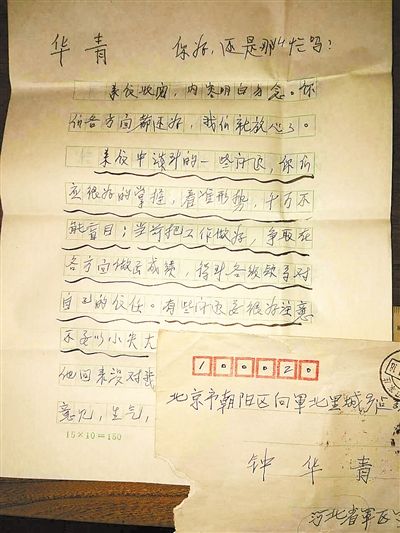 华青 你好,还是那么忙吗?
来信收阅,内容明白勿念。你
们各方面都还好,我们就放心了。
来信中谈到的一些问题,你们
应很好的掌握,看准形势,千万不
能盲目;当前把工作做好,争取在
各方面做出成绩,得到各级领导对
自己的信任。有些问题要很好注意
不要以小失大
他回来没对我
意见,生气,
15×10=150
100020
北京市朝阳区向军北里城
钟华青
河北省军区